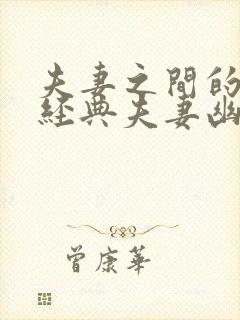 夫妻之間的
經典夫妻幽
曾康華